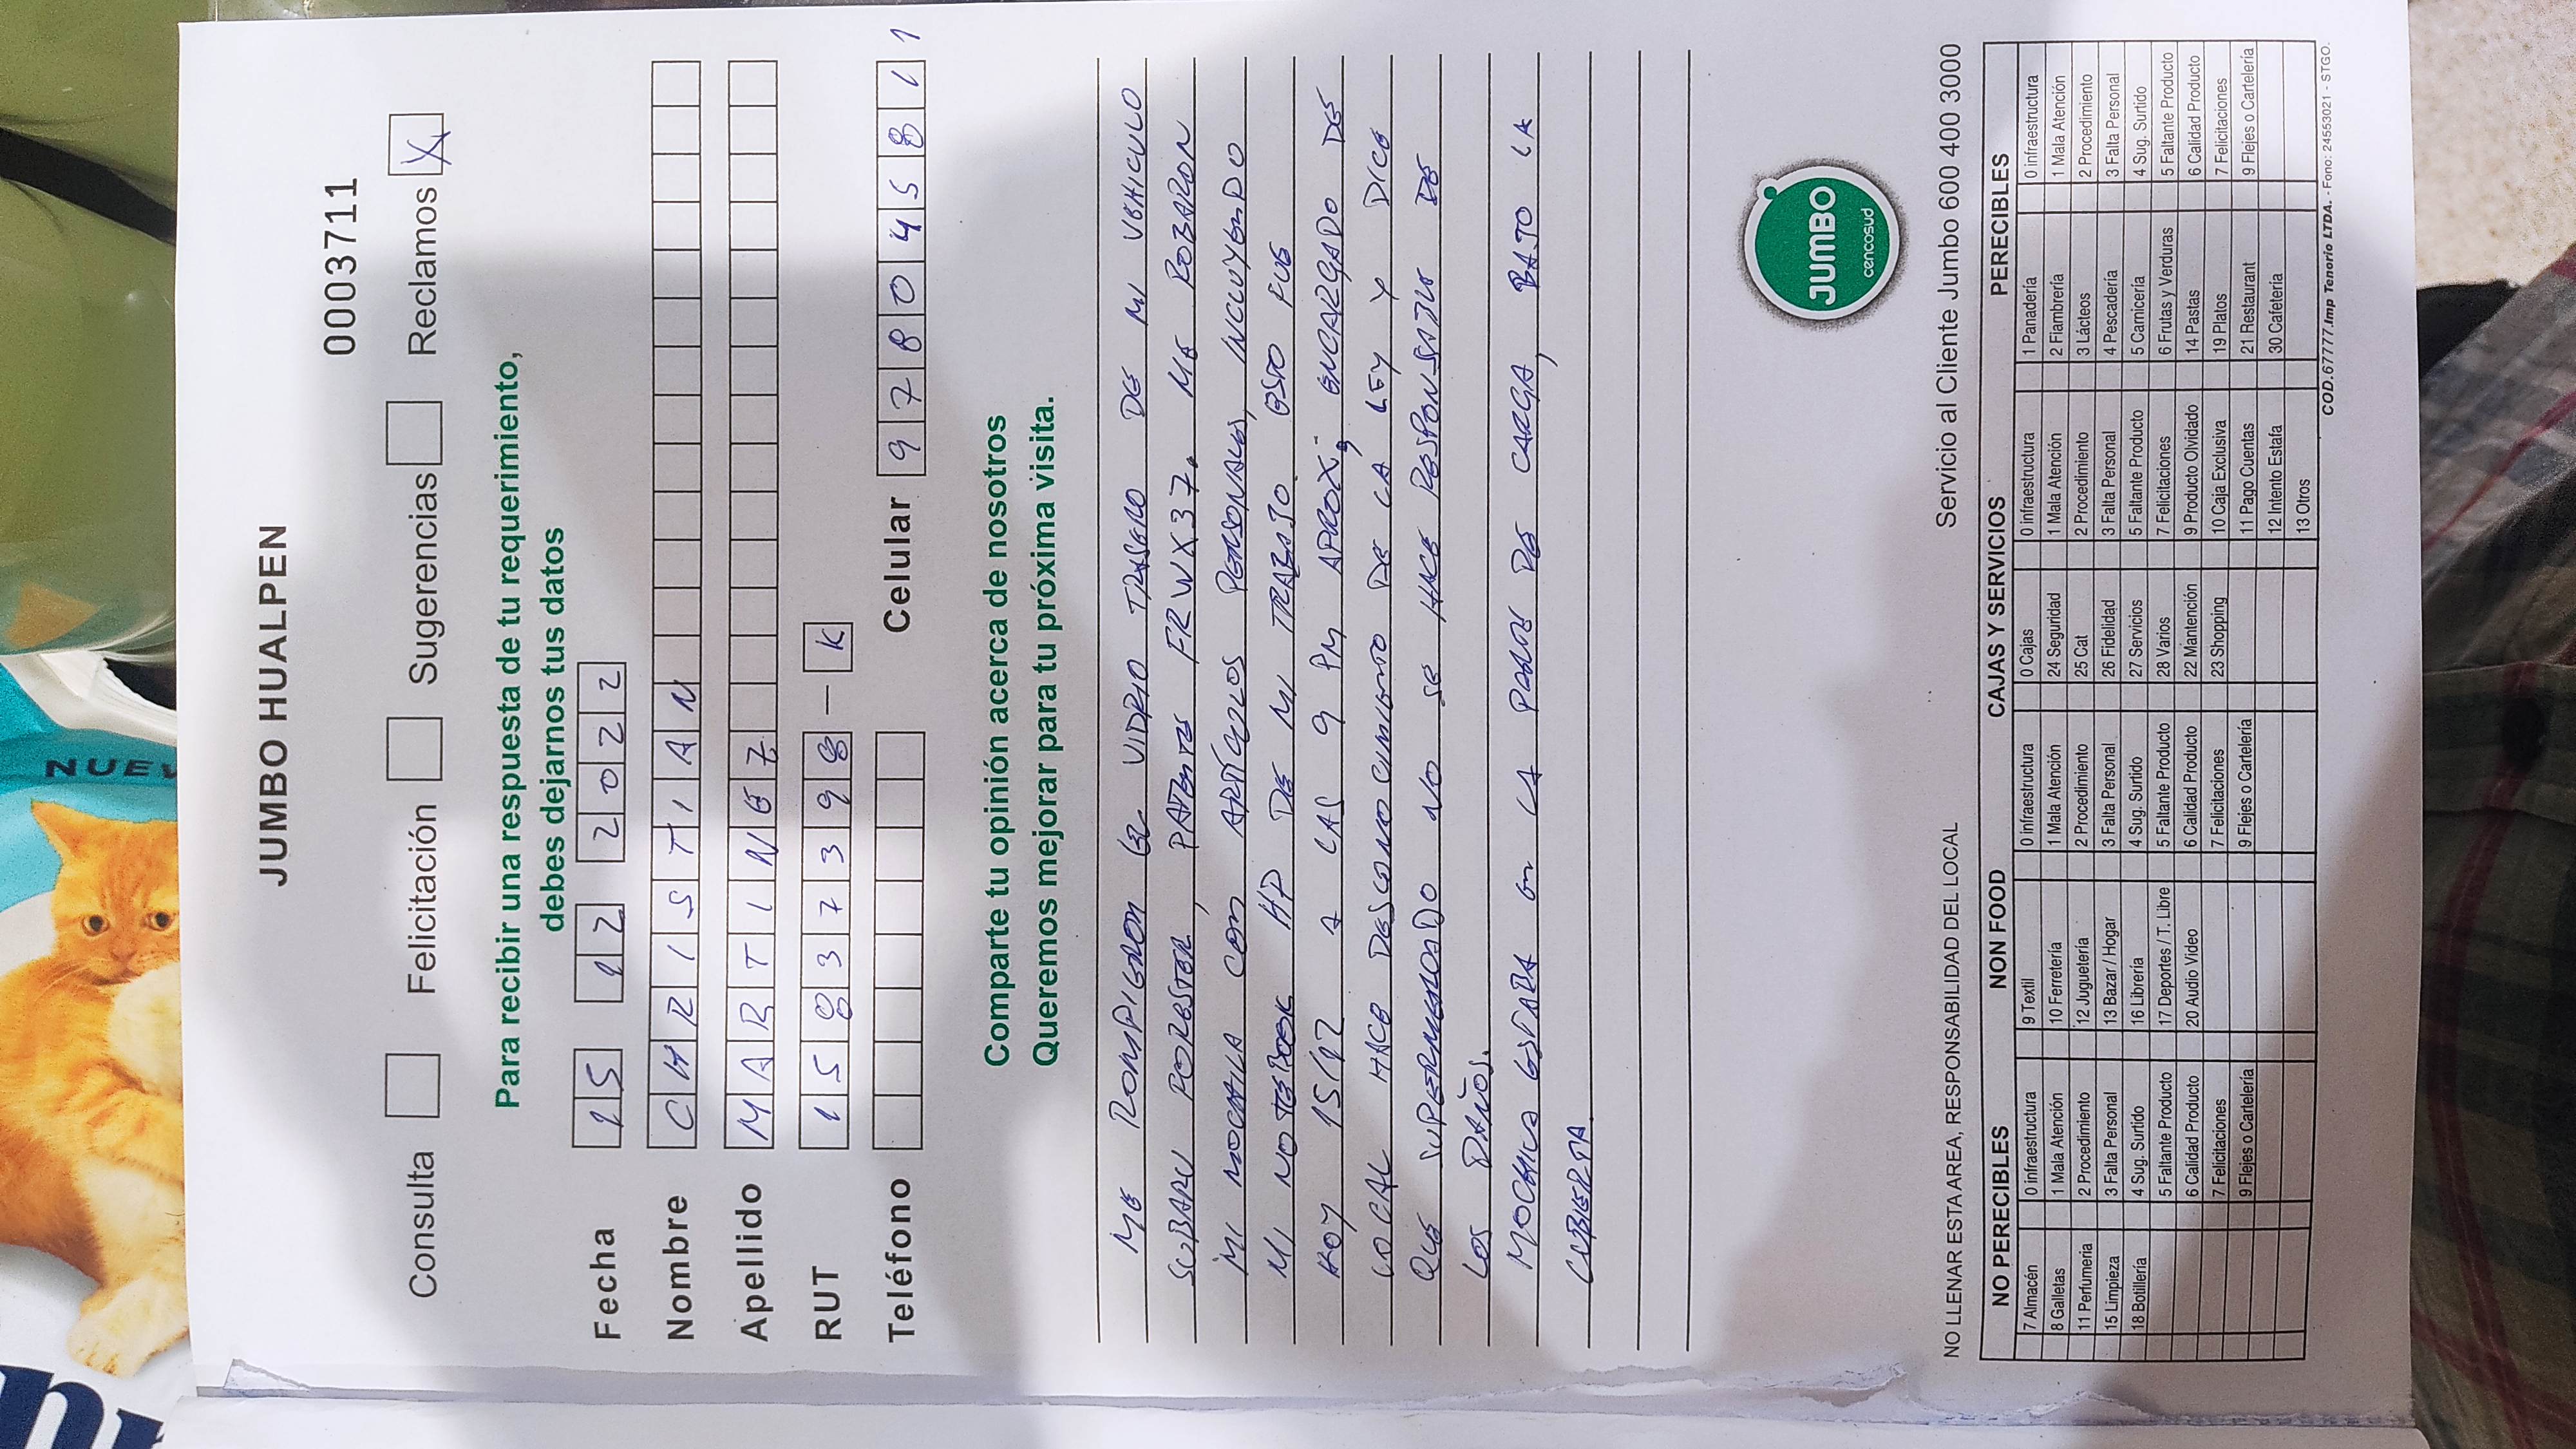 JUMBO HUALPEN
0003711
Consulta Felicitación Sugerencias Reclamos X
Para recibir una respuesta de tu requerimiento,
debes dejarnos tus datos
Fecha 15 12 2022
Nombre CHRISTIAN
Apellido MARTINEZ
RUT 15837398-K
Teléfono Celular 978045811
Comparte tu opinión acerca de nosotros
Queremos mejorar para tu próxima visita.
ME ROMPIERON EL VIDRIO TRASERO DE MI VEHICULO
SUBARU FORESTER, PATENTE FRWX37. ME ROBARON
MI MOCHILA CON ARTÍCULOS PERSONALES, INCLUYENDO
MI NOTEBOOK HP DE MI TRABAJO. ESTO FUE
HOY 15/12 A LAS 9 PM APROX., ENCARGADO DE
LOCAL HACE DESCONOCIMIENTO DE LA LEY Y DICE
QUE SUPERMERCADO NO SE HACE RESPONSABLE DE
LOS DAÑOS.
MOCHILA ESTABA EN LA PARTE DE CARGA, BAJO LA
CUBIERTA.
JUMBO
cencosud
NO LLENAR ESTA AREA, RESPONSABILIDAD DEL LOCAL Servicio al Cliente Jumbo 600 400 3000
NO PERECIBLES NON FOOD CAJAS Y SERVICIOS PERECIBLES
7 Almacén 0 infraestructura 9 Textil 0 infraestructura 0 Cajas 0 infraestructura 1 Panadería 0 infraestructura
8 Galletas 1 Mala Atención 10 Ferretería 1 Mala Atención 24 Seguridad 1 Mala Atención 2 Fiambrería 1 Mala Atención
11 Perfumería 2 Procedimiento 12 Juguetería 2 Procedimiento 25 Cat 2 Procedimiento 3 Lácteos 2 Procedimiento
15 Limpieza 3 Falta Personal 13 Bazar / Hogar 3 Falta Personal 26 Fidelidad 3 Falta Personal 4 Pescadería 3 Falta Personal
18 Botillería 4 Sug. Surtido 16 Librería 4 Sug. Surtido 27 Servicios 5 Faltante Producto 5 Carnicería 4 Sug. Surtido
5 Faltante Producto 17 Deportes / T. Libre 5 Faltante Producto 28 Varios 7 Felicitaciones 6 Frutas y Verduras 5 Faltante Producto
6 Calidad Producto 20 Audio Video 6 Calidad Producto 22 Mantención 9 Producto Olvidado 14 Pastas 6 Calidad Producto
7 Felicitaciones 7 Felicitaciones 23 Shopping 10 Caja Exclusiva 19 Platos 7 Felicitaciones
9 Flejes o Cartelería 9 Flejes o Cartelería 11 Pago Cuentas 21 Restaurant 9 Flejes o Cartelería
12 Intento Estafa 30 Cafetería
13 Otros
COD.67777.Imp Tenorio LTDA. - Fono: 24553021 - STGO.